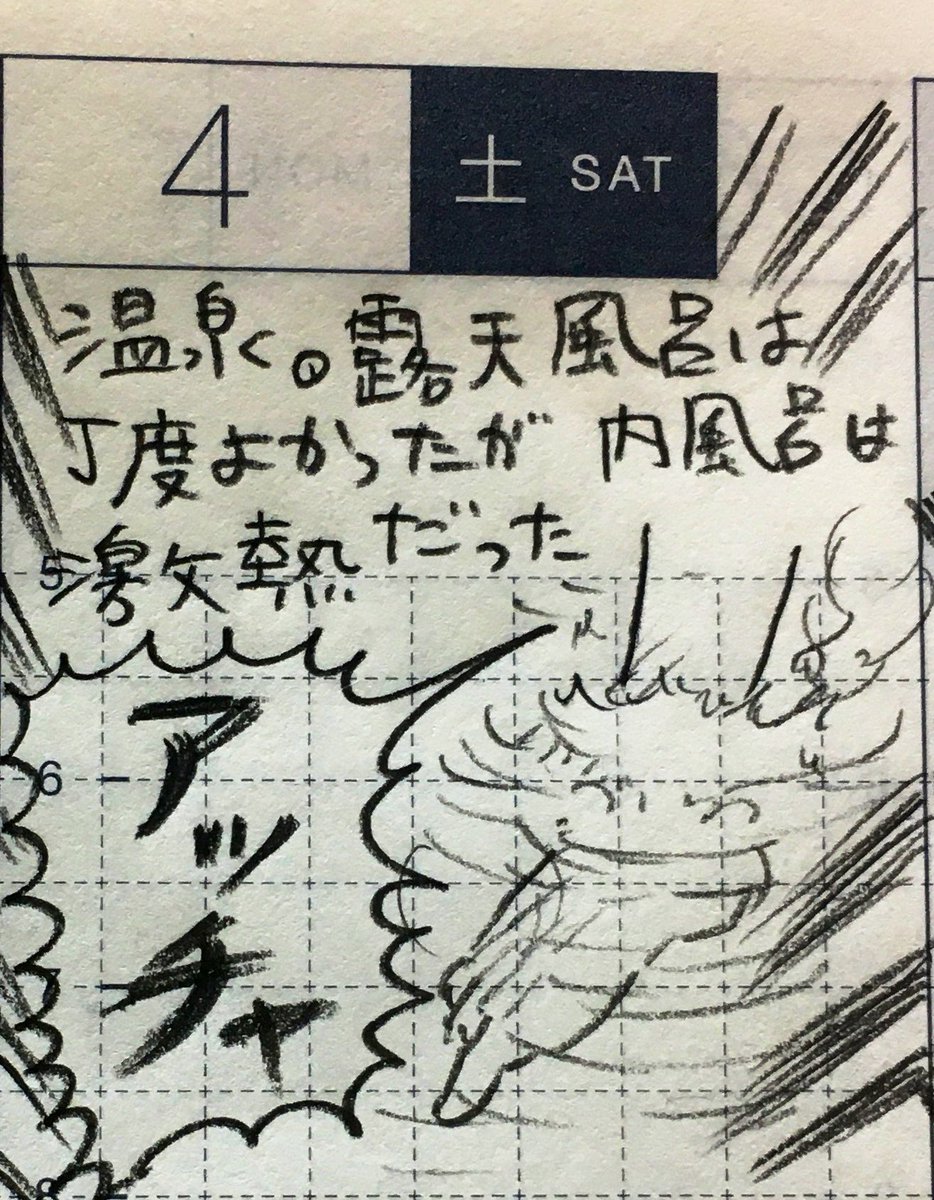 4 土 SAT
温泉。露天風呂は
丁度よかったが 内風呂は
激熱だった
5
アッチャ
6
8